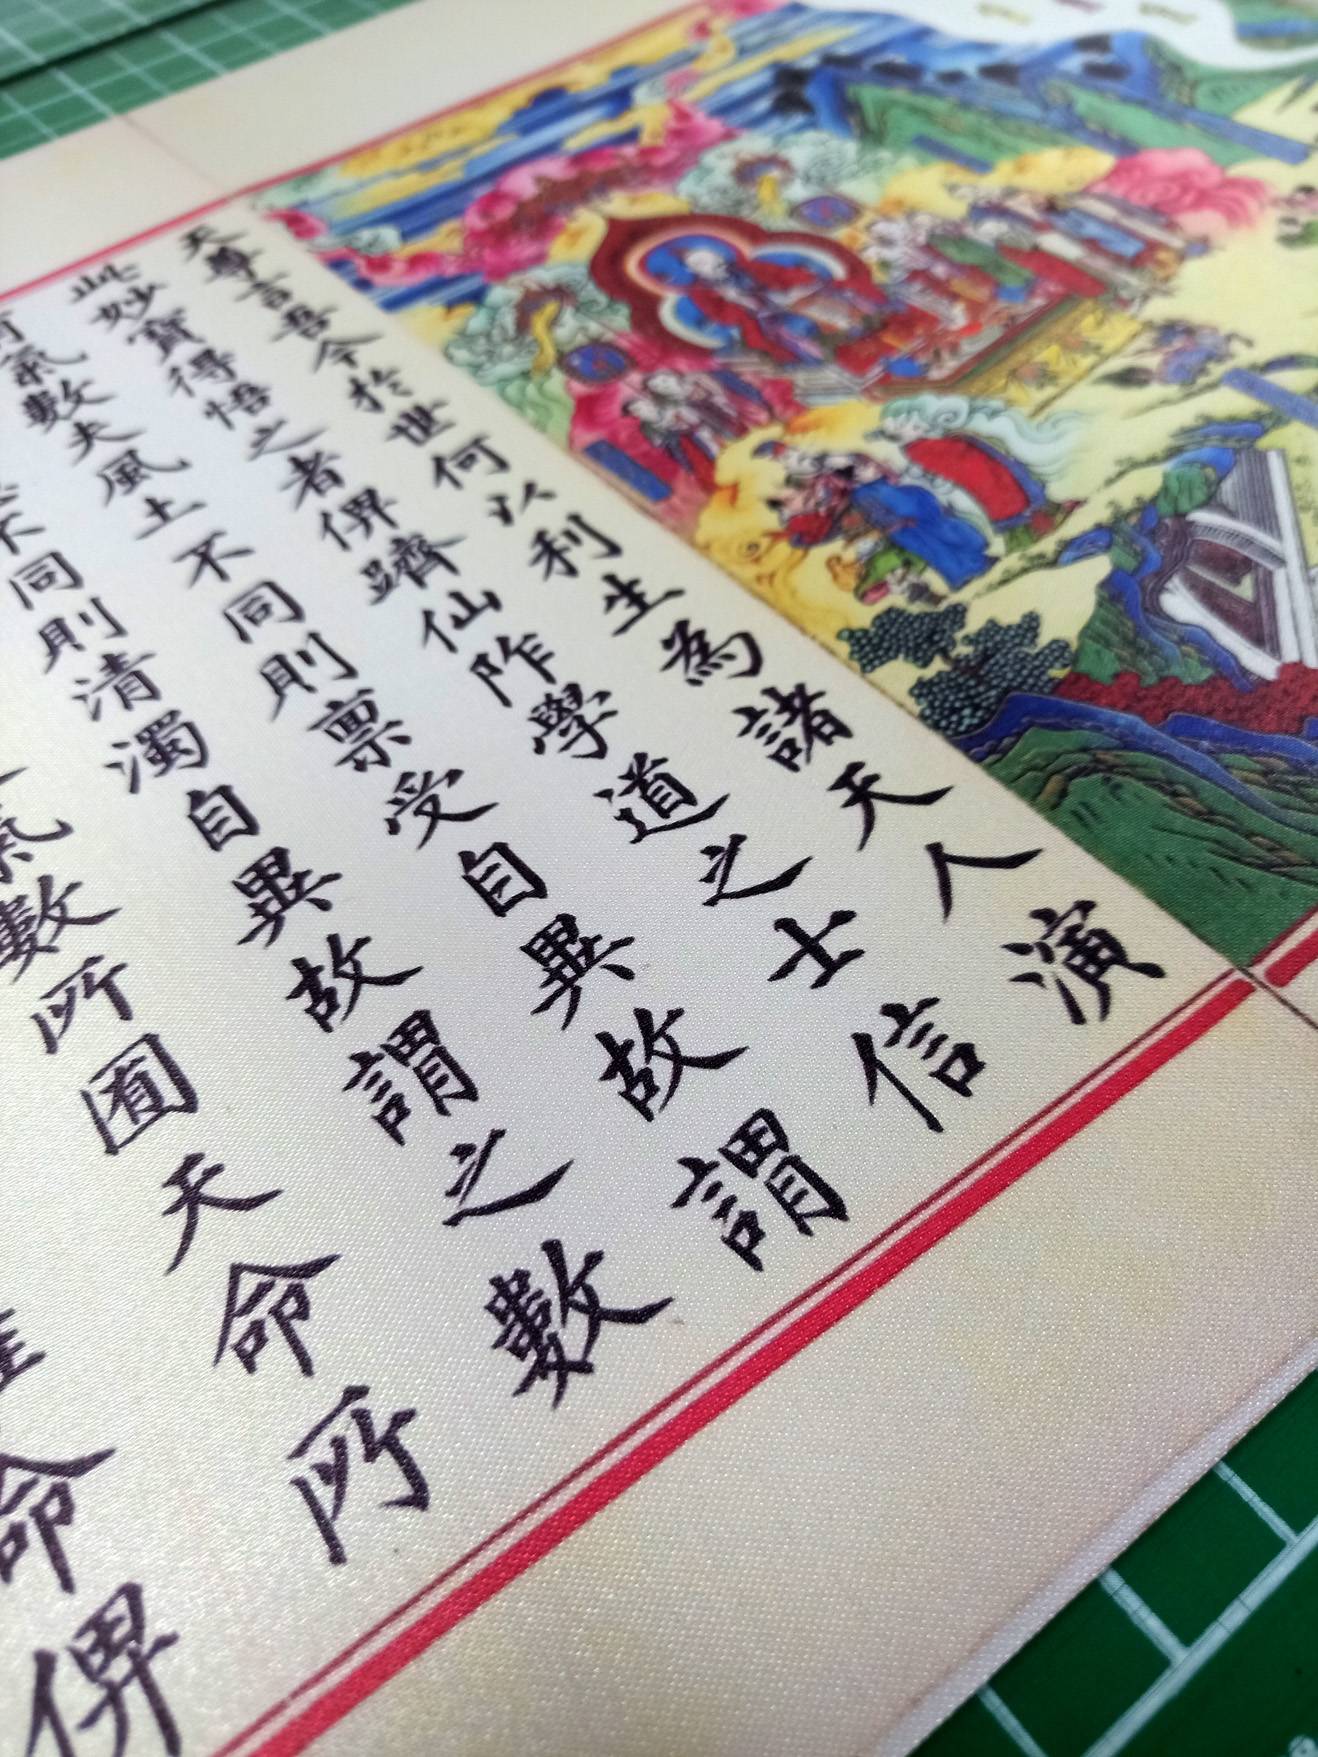 天尊言吾今於世何以利生為諸天人演
此妙寶得悟之者俾躋仙阼學道之士信
有氣數夫風土不同則禀受自異故謂
不同則清濁自異故謂之數
氣數所囿天命所
命俾